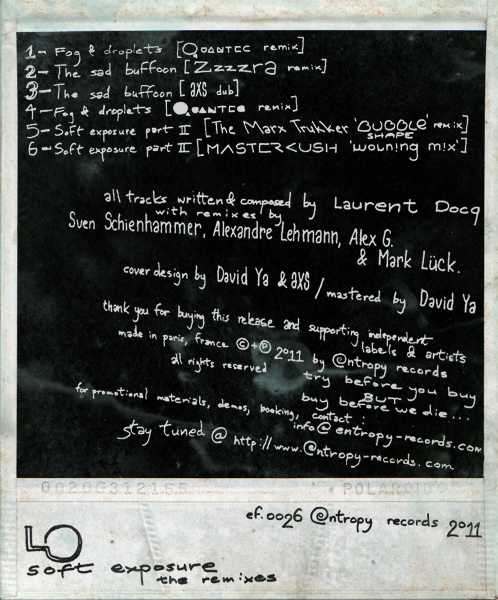 1- Fog & droplets [Quantec remix]
2- The sad buffoon [Zzzzra remix]
3- The sad buffoon [axs dub]
4- Fog & droplets [Quantec remix]
5- Soft exposure part II [The Marx Trukker 'BUBBLE SHAPE' remix]
6- Soft exposure part II [MASTERKUSH 'wolning m!x']
all tracks written & composed by Laurent Docq
with remixes by
Sven Schienhammer, Alexandre Lehmann, Alex G.
& Mark Lück.
cover design by David Ya & axs / mastered by David Ya
thank you for buying this release and supporting independent
labels & artists
made in paris, france ©+℗ 2011 by @ntropy records
all rights reserved
try before you buy
BUT
buy before we die...
for promotional materials, demos, booking, contact :
info@entropy-records.com
stay tuned @ http://www.@ntropy-records.com
00286312155 POLAROID
ef.0026 @ntropy records 2011
LO
soft exposure
the remixes